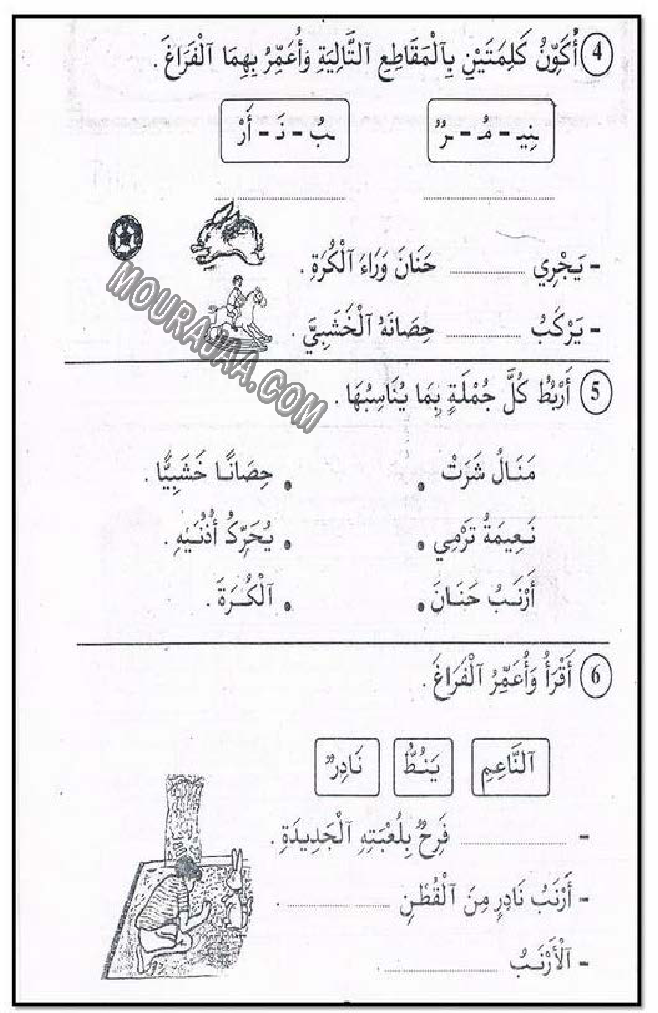 4 أُكَوِّنُ كَلِمَتَيْنِ بِٱلْمَقَاطِعِ ٱلتَّالِيَةِ وَأُعَمِّرُ بِهِمَا ٱلْفَرَاغَ .
نِيـ - مُـ - ـرٌ
ـبُ - نَـ - أَرْ
- يَجْرِي ............ حَنَانَ وَرَاءَ ٱلْكُرَةِ .
- يَرْكَبُ ............ حِصَانَهُ ٱلْخَشَبِيَّ .
5 أَرْبُطُ كُلَّ جُمْلَةٍ بِمَا يُنَاسِبُهَا .
مَنَالُ شَرَتْ • • حِصَانًا خَشَبِيًّا .
نَعِيمَةُ تَرْمِي • • يُحَرِّكُ أُذُنَيْهِ .
أَرْنَبُ حَنَانَ • • ٱلْكُرَةَ .
6 أَقْرَأُ وَأُعَمِّرُ ٱلْفَرَاغَ .
ٱلنَّاعِمِ يَنُطُّ نَادِرٌ
- ............ فَرِحٌ بِلُعْبَتِهِ ٱلْجَدِيدَةِ .
- أَرْنَبُ نَادِرٍ مِنَ ٱلْقُطْنِ ............ .
- ٱلْأَرْنَبُ ............
MOURAJAA.COM